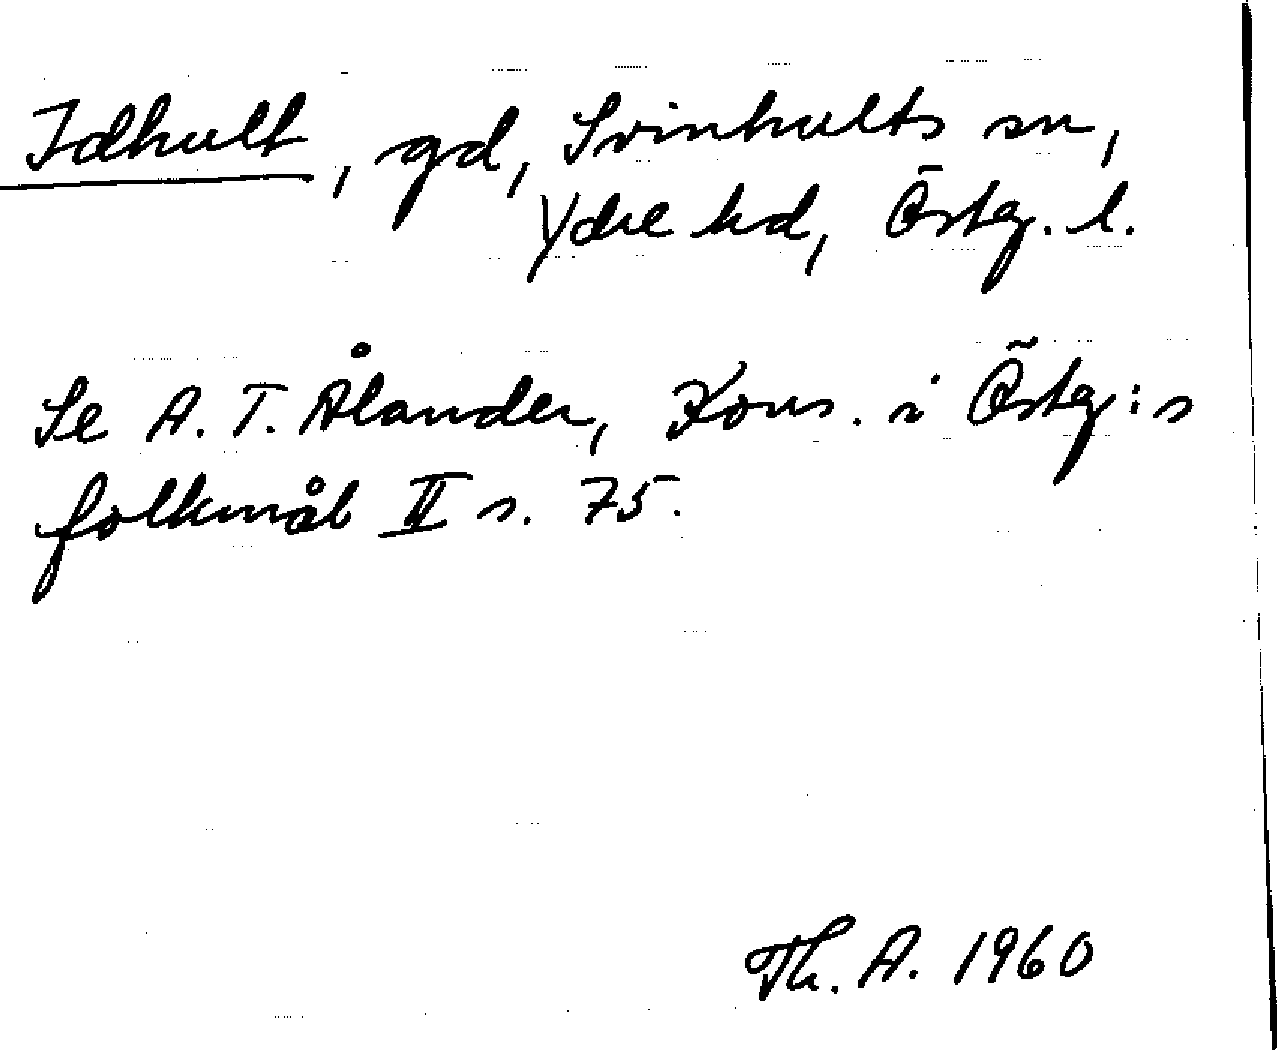 Idhult, gd, Svinhults sn,
Ydre hd, Östg. l.
Se A. T. Ålander, Kons. i Östg:s
folkmål II s. 75.
Th. A. 1960